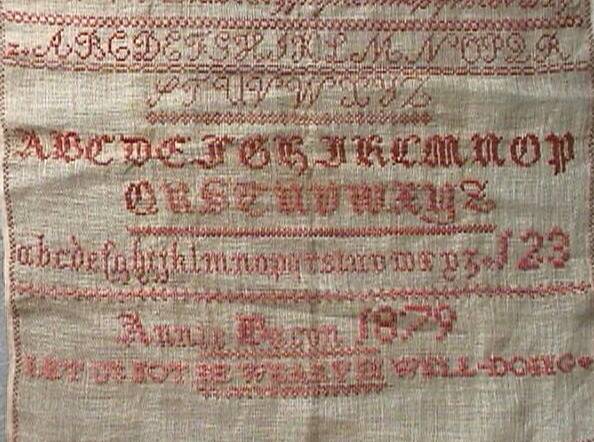 ABCDEFGHIKLMNOPQR
STUVWXYZ
ABCDEFGHIKLMNOP
QRSTUVWXYZ
abcdefghijklmnopqrstuvwxyz 123
Annie 1879
LET US NOT BE WEARY IN WELL-DOING